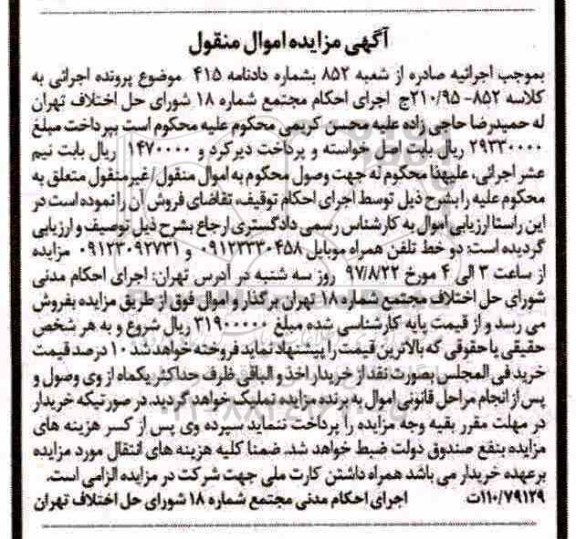 آگهی مزایده اموال منقول
بموجب اجرائیه صادره از شعبه ۸۵۲ بشماره دادنامه ۴۱۵ موضوع پرونده اجرائی به
کلاسه ۸۵۲-۲۱۰/۹۵ج اجرای احکام مجتمع شماره ۱۸ شورای حل اختلاف تهران
له حمیدرضا حاجی زاده علیه محسن کریمی محکوم علیه محکوم است بپرداخت مبلغ
۲۹۳۳۰۰۰۰ ریال بابت اصل خواسته و پرداخت دیرکرد و ۱۴۷۰۰۰۰ ریال بابت نیم
عشر اجرائی، علیهذا محکوم له جهت وصول محکوم به اموال منقول /غیرمنقول متعلق به
محکوم علیه را بشرح ذیل توسط اجرای احکام توقیف، تقاضای فروش آن را نموده است در
این راستا ارزیابی اموال به کارشناس رسمی دادگستری ارجاع بشرح ذیل توصیف و ارزیابی
گردیده است: دو خط تلفن همراه موبایل ۰۹۱۲۳۳۳۰۴۵۸ و ۰۹۱۲۳۰۹۲۷۳۱ مزایده
از ساعت ۳ الی ۴ مورخ ۹۷/۸/۲۲ روز سه شنبه در آدرس تهران: اجرای احکام مدنی
شورای حل اختلاف مجتمع شماره ۱۸ تهران برگذار و اموال فوق از طریق مزایده بفروش
می رسد و از قیمت پایه کارشناسی شده مبلغ ۳۱۹۰۰۰۰۰ ریال شروع و به هر شخص
حقیقی یا حقوقی که بالاترین قیمت را پیشنهاد نماید فروخته خواهد شد ۱۰ درصد قیمت
خرید فی المجلس بصورت نقد از خریدار اخذ و الباقی ظرف حداکثر یکماه از وی وصول و
پس از انجام مراحل قانونی اموال به برنده مزایده تملیک خواهد گردید. در صورتیکه خریدار
در مهلت مقرر بقیه وجه مزایده را پرداخت ننماید سپرده وی پس از کسر هزینه های
مزایده بنفع صندوق دولت ضبط خواهد شد. ضمنا کلیه هزینه های انتقال مورد مزایده
برعهده خریدار می باشد همراه داشتن کارت ملی جهت شرکت در مزایده الزامی است.
۱۱۰/۷۹۱۲۹ت اجرای احکام مدنی مجتمع شماره ۱۸ شورای حل اختلاف تهران